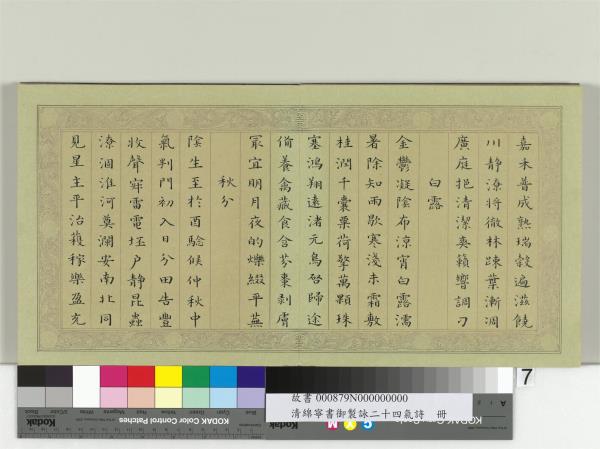 嘉禾普成熟瑞穀遍滋饒
川靜潦將徹林踈葉漸凋
廣庭挹清潔爽籟響調刁
白露
金鬱凝陰布涼宵白露濡
暑除知雨歇寒淺未霜敷
桂潤千囊粟荷擎萬顆珠
塞鴻翔遠渚元鳥啓歸途
備養禽藏食含芬棗剥膚
冣宜明月夜的爍綴平蕪
秋分
陰生至於酉驗候仲秋中
氣判門初入日分田告豐
收聲寀雷電坯戶靜昆蟲
潦涸淮河奠瀾安南北同
見星主平治穫稼樂盈充
7
故書 000879N000000000
清綿寧書御製詠二十四氣詩 冊
Kodak Color Control Patches
Blue
Cyan
Green
Yellow
Red
Magenta
White
Black
KODAK
C Y M
A